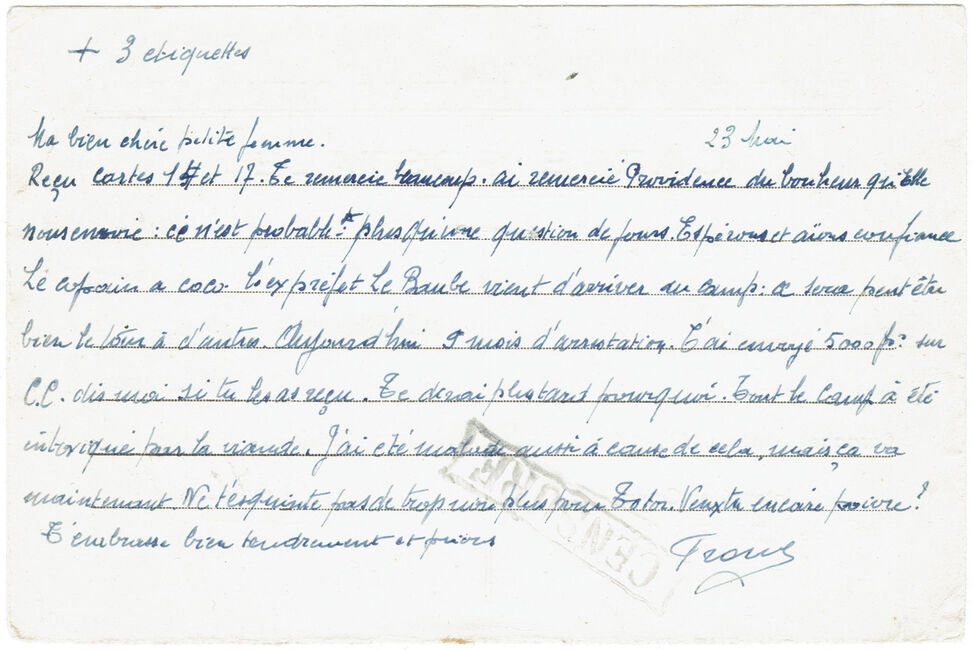 + 3 etiquettes
Ma bien chère petite femme. 23 Mai
Reçu cartes et 17. Te remercie beaucoup. ai remercié Providence du bonheur qu'Elle
nous envoie : ce n'est probablet plus qu'une question de jours. Espérons et aions confiance
Le copain a coco l'ex préfet Le Baube vient d'arriver au camp : ce sera peut être
bien le tour à d'autres. Aujourd'hui 9 mois d'arrestation. T'ai envoyé 5000 frs sur
C.C. dis moi si tu les as reçu. Te dirai plus tard pourquoi. Tout le camp à été
intoxiqué par la viande. J'ai été malade aussi à cause de cela, mais ça va
maintenant. Ne t'esquinte pas de trop non plus pour Totor. Veux tu encore poivre ?
T'embrasse bien tendrement et
CENSURE